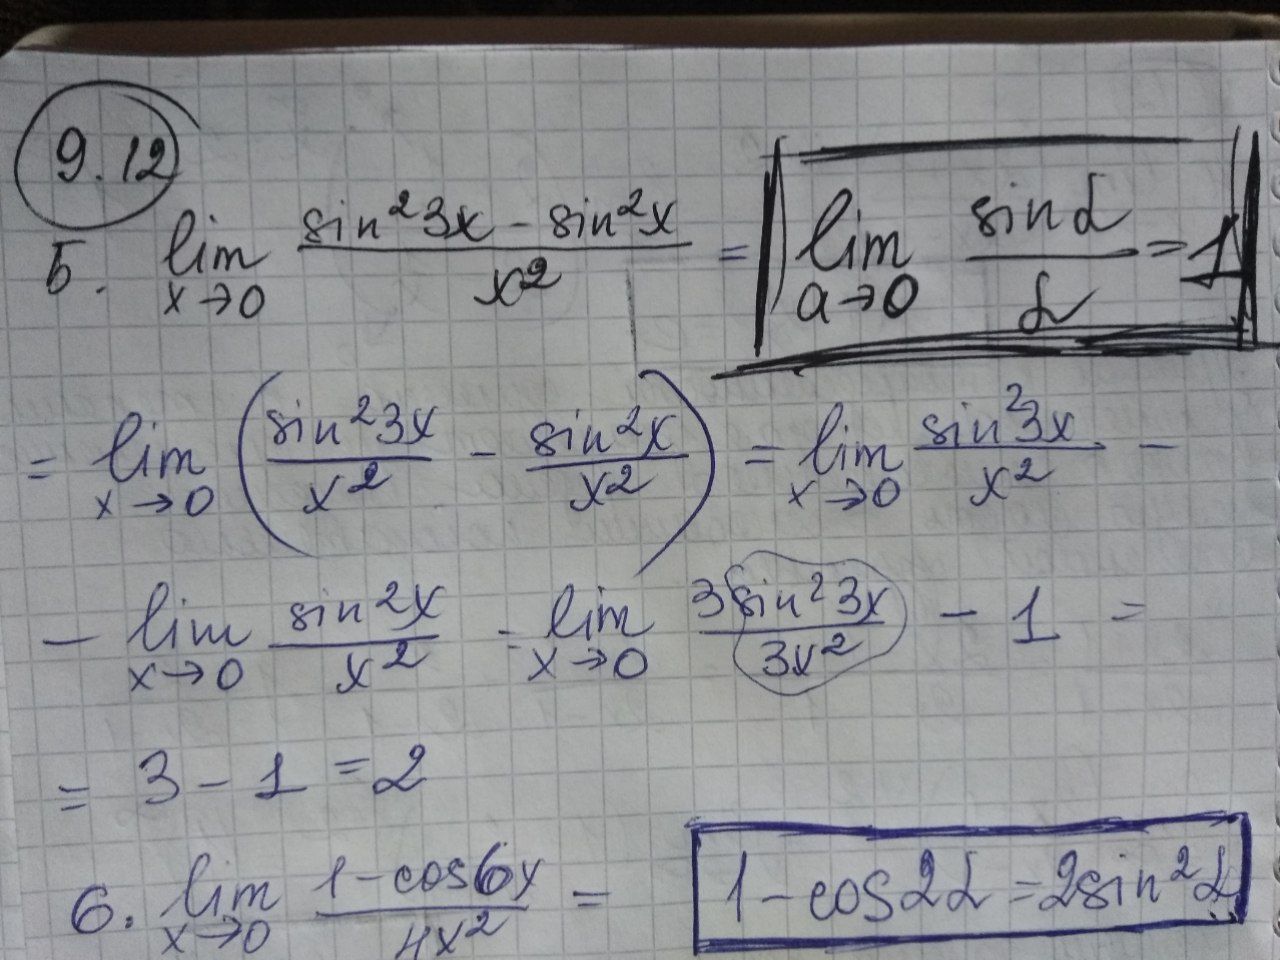 9.12
5. lim x→0 (sin²3x - sin²x)/x² = || lim a→0 sinα/α = 1 ||
= lim x→0 (sin²3x/x² - sin²x/x²) = lim x→0 sin²3x/x² -
- lim x→0 sin²x/x² = lim x→0 3sin²3x/3x² - 1 =
= 3 - 1 = 2
6. lim x→0 (1-cos6x)/4x² = 1-cos2α=2sin²α